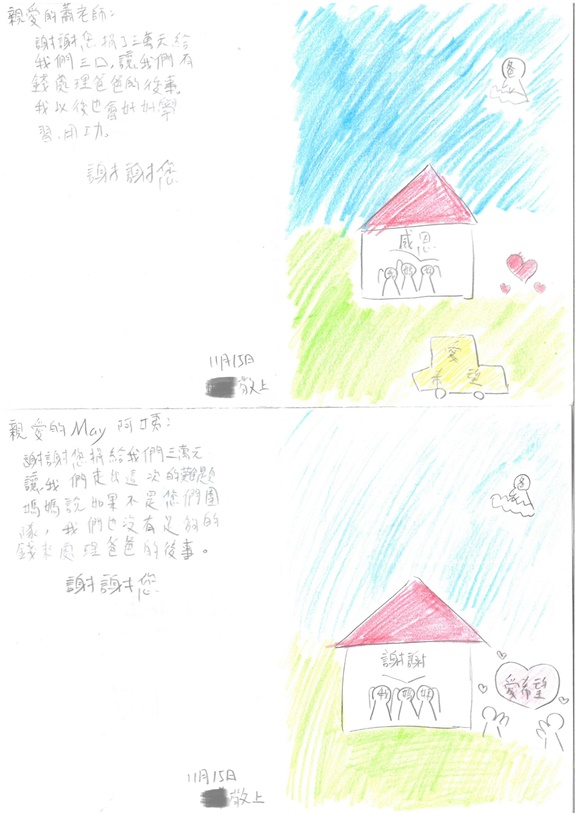 親愛的蕭老師：
謝謝您捐了三萬元給
我們三口，讓我們有
錢處理爸爸的後事。
我以後也會好好學
習、用功。
謝謝您
11月15日
敬上
爸
感恩
愛
希望
親愛的May阿姨：
謝謝您捐給我們三萬元
讓我們走出這次的難題
媽媽說如果不是您們團
隊，我們也沒有足夠的
錢來處理爸爸的後事。
謝謝您
11月15日
敬上
爸
謝謝
愛希望